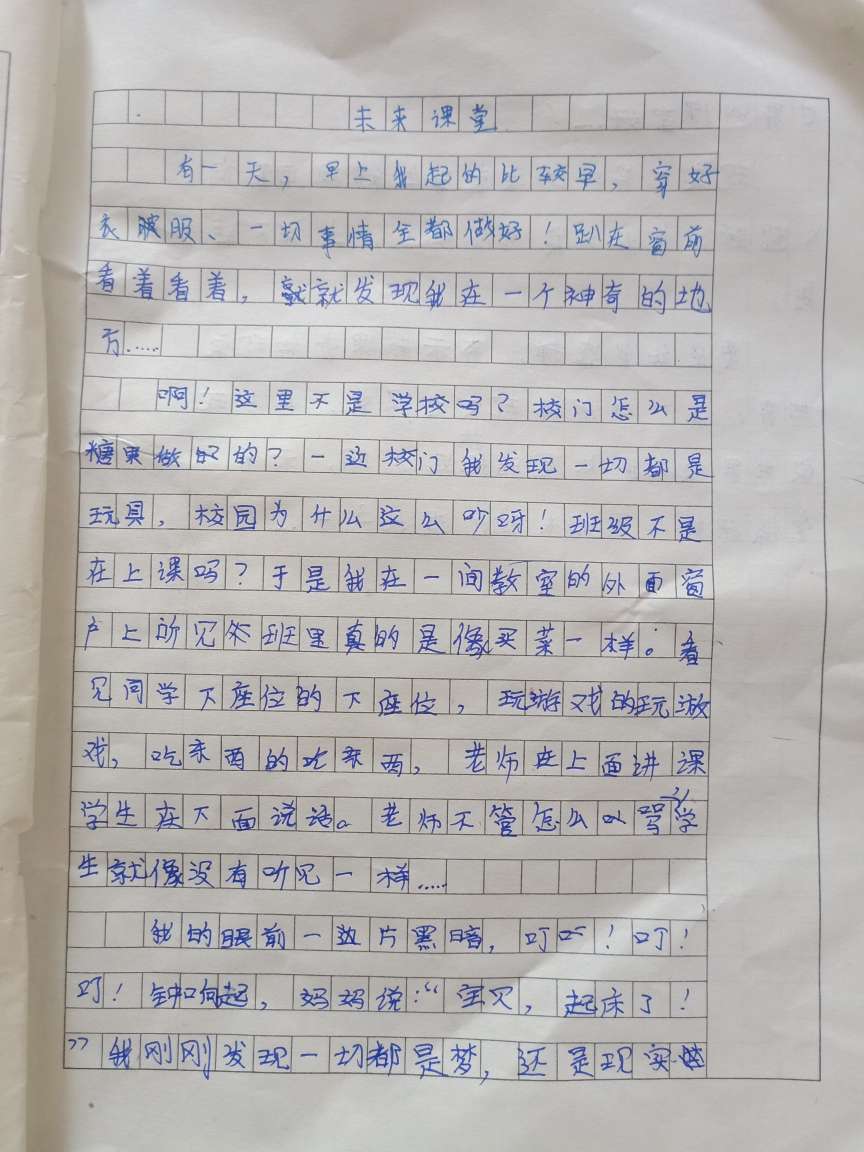 未来课堂
有一天，早上我起的比较早，穿好
衣服、一切事情全都做好！趴在窗前
看着看着，就发现我在一个神奇的地
方……
啊！这里不是学校吗？校门怎么是
糖果做的？一进校门我发现一切都是
玩具，校园为什么这么吵呀！班级不是
在上课吗？于是我在一间教室的外面窗
户上所见班里真的是像买菜一样。看
见同学下座位的下座位，玩游戏的玩游
戏，吃东西的吃东西，老师在上面讲课
学生在下面说话。老师不管怎么骂，学
生就像没有听见一样……
我的眼前一片黑暗，叮！叮！
叮！钟响起，妈妈说：“宝贝，起床了！
”我刚刚发现一切都是梦，还是现实